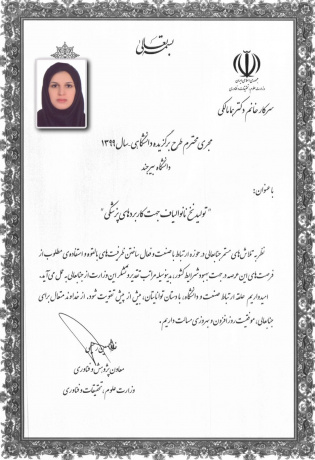 بسمه تعالی
جمهوری اسلامی ایران
وزارت علوم، تحقیقات و فناوری
سرکار خانم دکتر هما مالکی
مجری محترم طرح برگزیده دانشگاهی - سال ۱۳۹۹
دانشگاه بیرجند
با عنوان:
"تولید نخ نانوالیاف جهت کاربردهای پزشکی"
نظر به تلاش‌های مستمر جنابعالی در حوزه ارتباط با صنعت و فعال ساختن ظرفیت‌های بالقوه و استفاده‌ی مطلوب از
فرصت‌های این عرصه در جهت بهبود شرایط کشور، بدینوسیله مراتب تقدیر و تشکر این وزارت از جنابعالی به عمل می‌آید.
امید داریم حلقه ارتباط صنعت و دانشگاه، با دستان توانایتان، بیش از پیش تقویت شود. از خداوند متعال برای
جنابعالی، موفقیت روزافزون و بهروزی مسالت داریم.
معاون پژوهش و فناوری
وزارت علوم، تحقیقات و فناوری